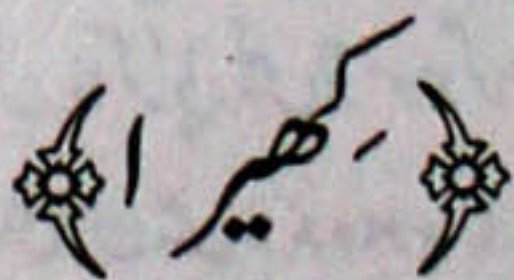 کِھیرا